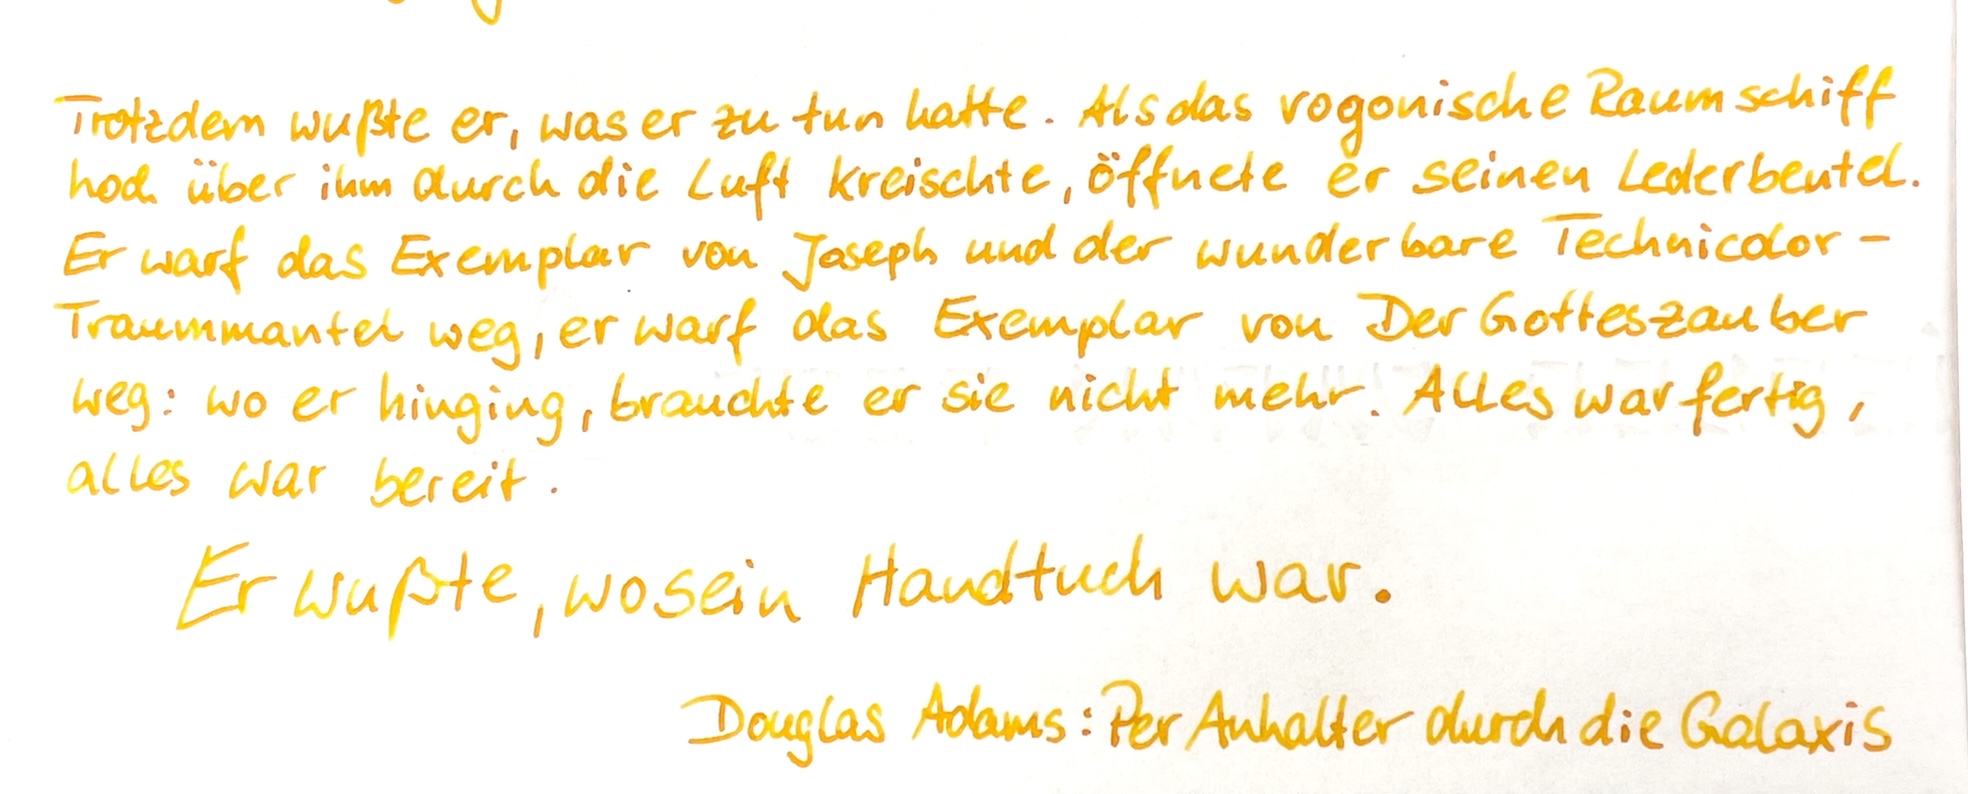 Trotzdem wußte er, was er zu tun hatte. Als das vogonische Raumschiff
hoch über ihm durch die Luft kreischte, öffnete er seinen Lederbeutel.
Er warf das Exemplar von Joseph und der wunderbare Technicolor-
Traummantel weg, er warf das Exemplar von Der Gotteszauber
weg: wo er hinging, brauchte er sie nicht mehr. Alles war fertig,
alles war bereit.
Er wußte, wo sein Handtuch war.
Douglas Adams: Per Anhalter durch die Galaxis